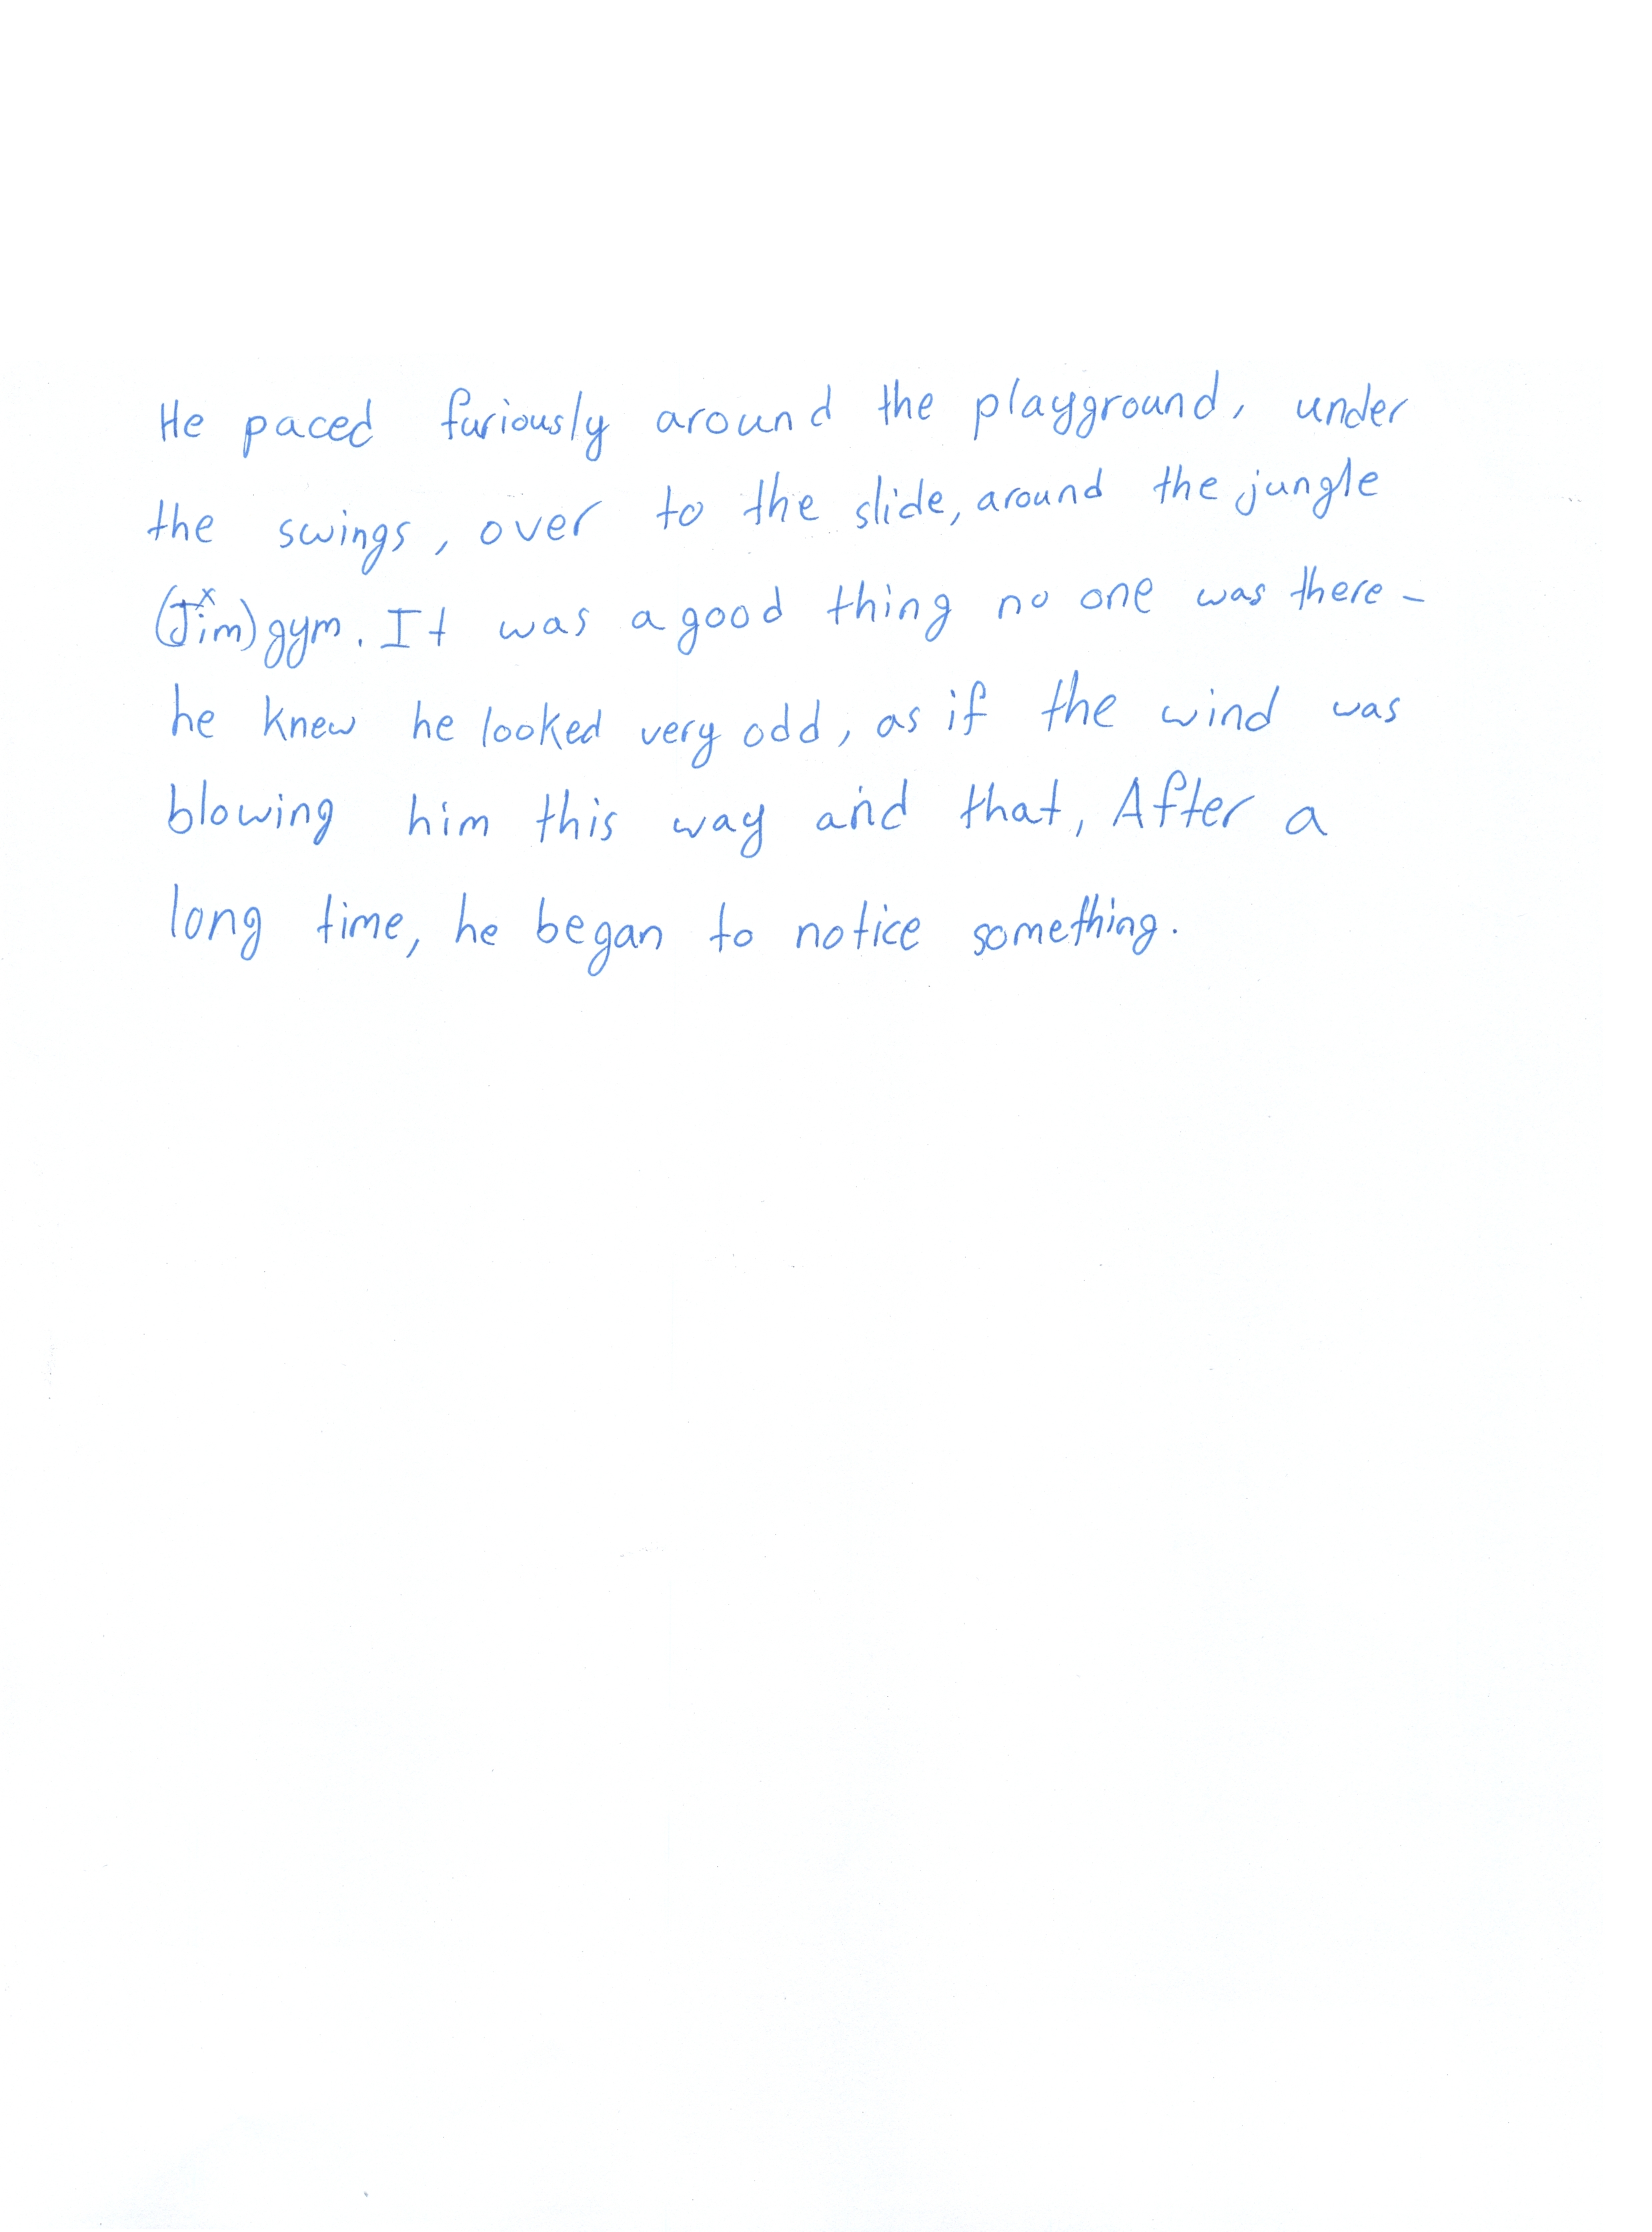 He paced furiously around the playground, under
the swings, over to the slide, around the jungle
(Jim) gym. It was a good thing no one was there -
he knew he looked very odd, as if the wind was
blowing him this way and that, After a
long time, he began to notice something.